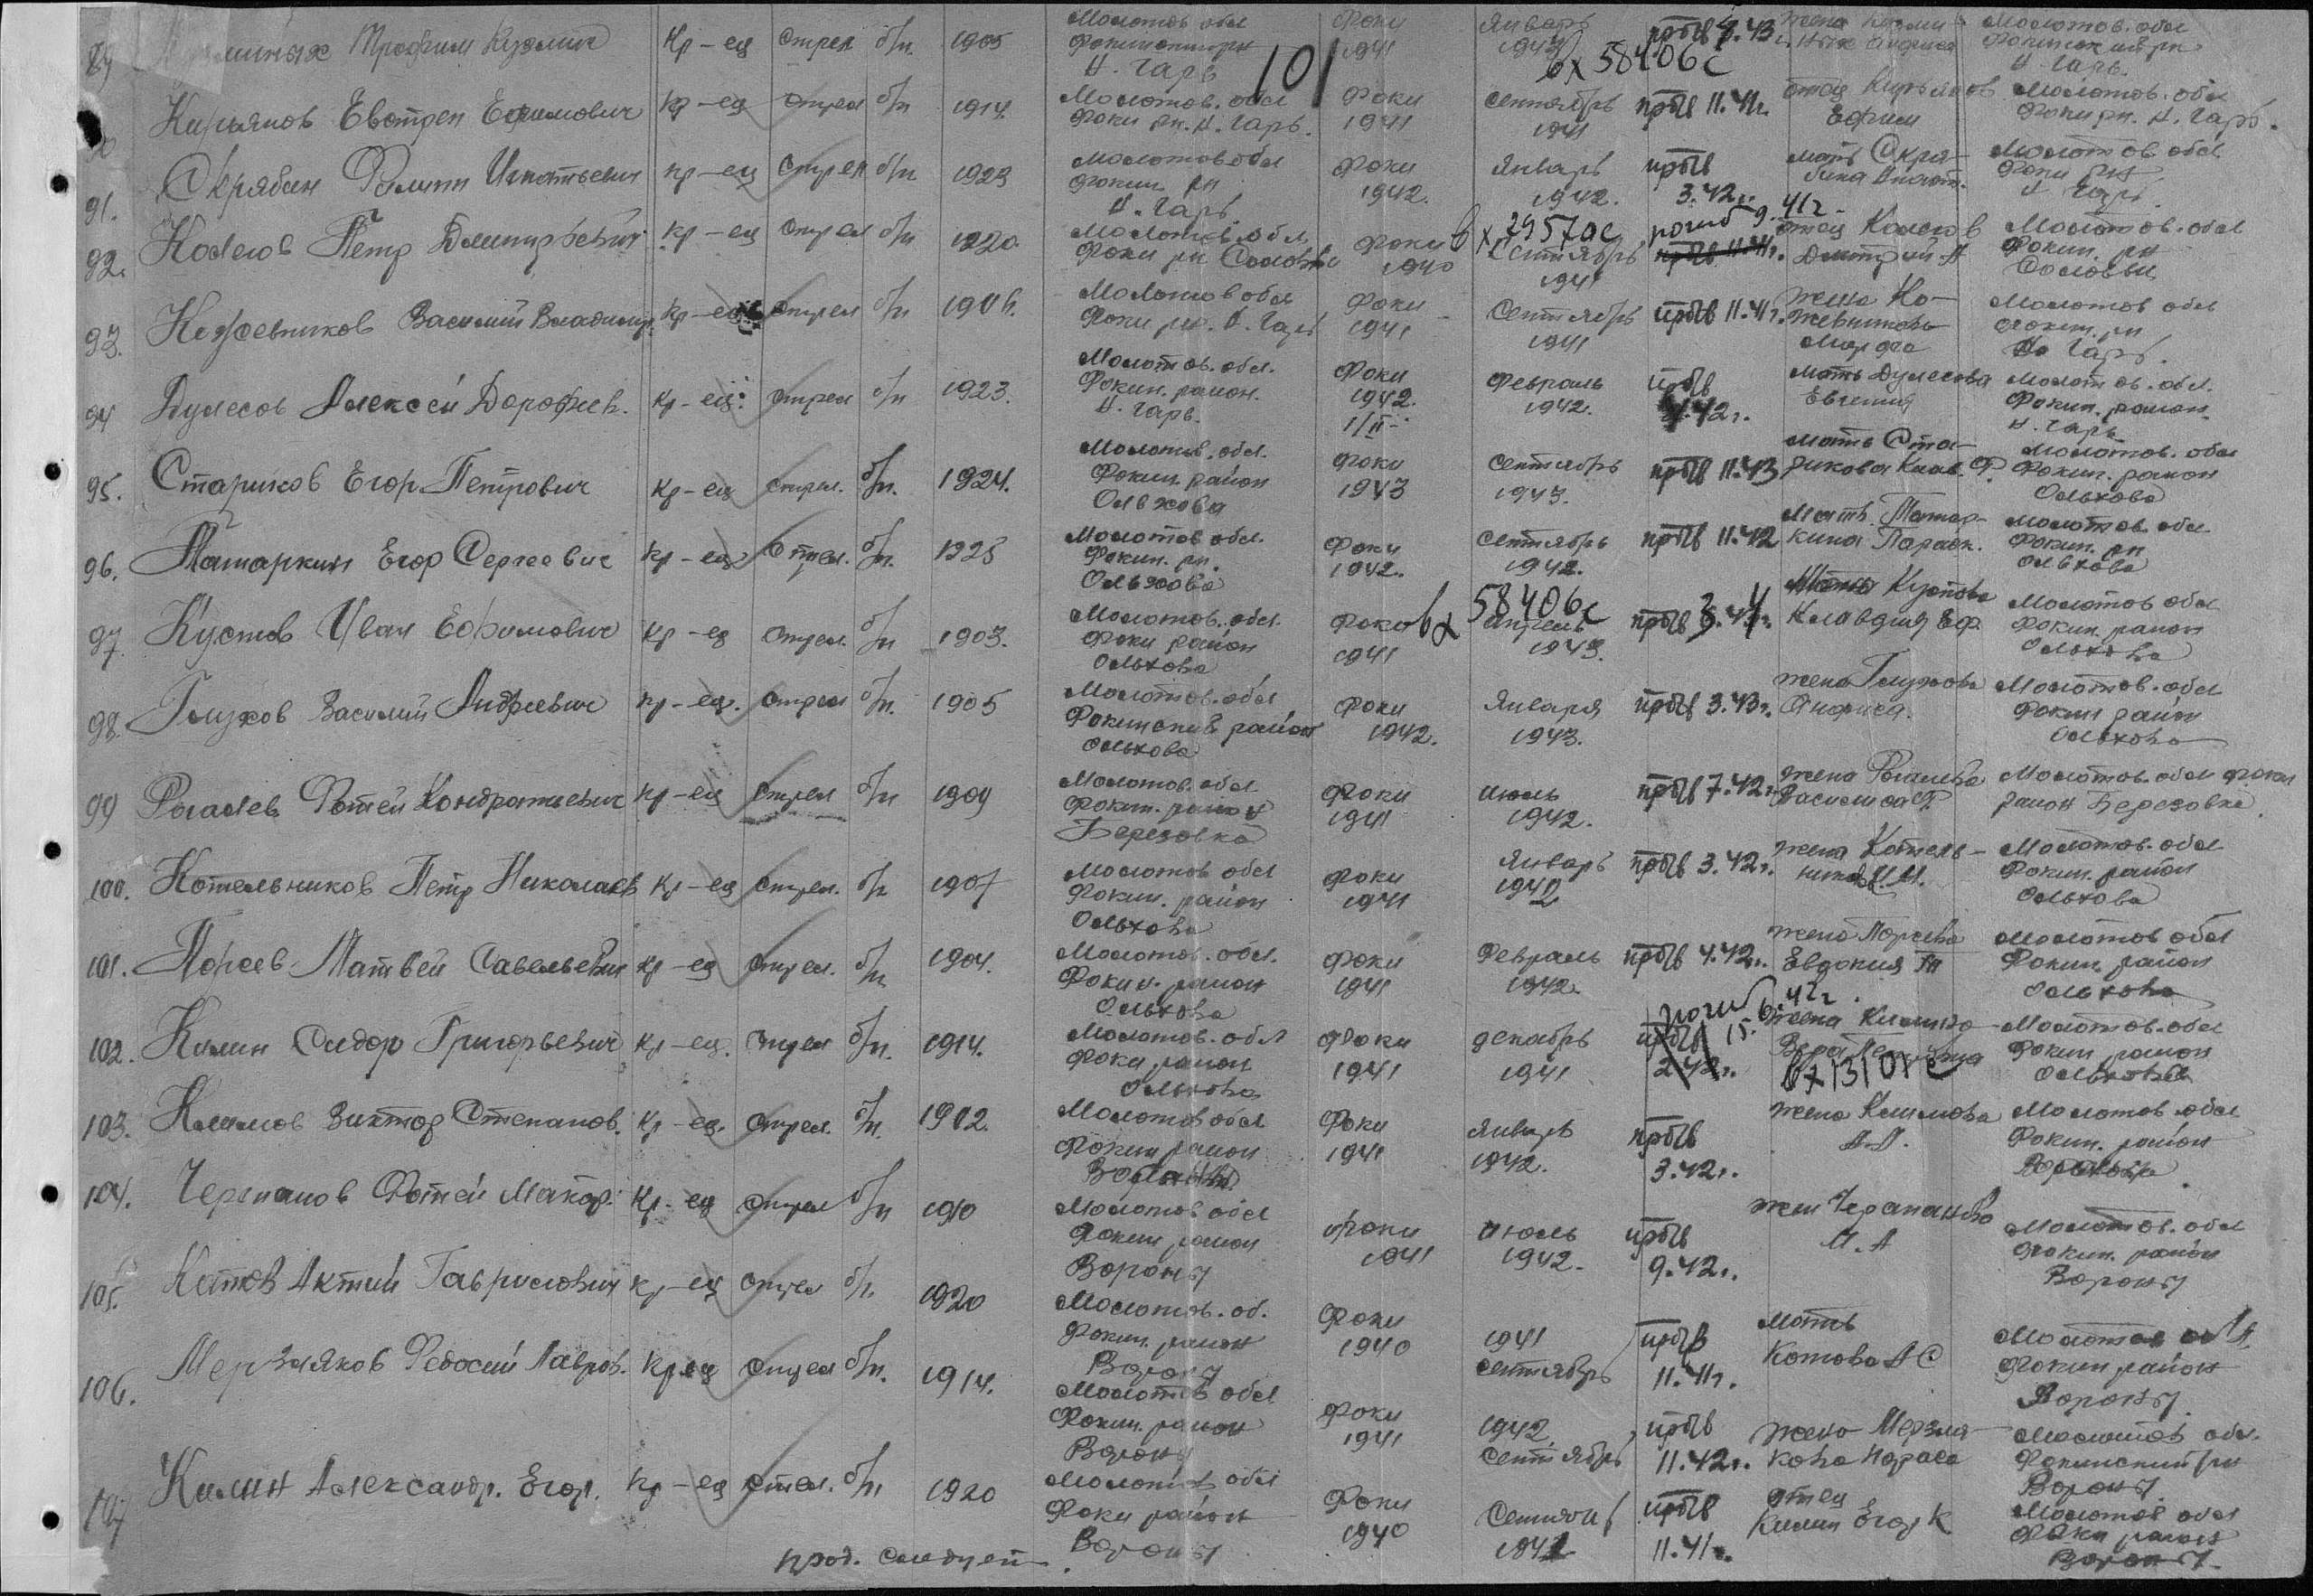 89 Трофим Кузьмич Кр-ец стрел б/п. 1905 Молотов обл Фоки Январь проп в 4.43 жена
Н. Гарь 1941 1943 Н. Гарь.
101 вх 58406с
Кирьянов Евстрен Ефимович кр-ец стрел б/п 1914. Молотов. обл Фоки сентябрь проп в 11.41г. отец Кирьянов Молотов. обл
Фоки рн. Н. Гарь. 1941 1941 Ефим Фоки рн. Н. Гарь.
91. Скрябин Филипп Игнатьевич кр-ец стрел б/п 1923 Молотов обл Фоки январь проп в мать Скря- Молотов обл
Фокин рн 1942. 1942. 3.42г. бина Фоки рн
Н. Гарь. Н Гарь.
вх 2957ос погиб 9.41г.
92. Колегов Петр Дмитрьевич кр-ец стрел б/п 1920 Молотов. обл. Фоки Сентябрь проп в 11.41г. отец Колегов Молотов. обл
Фоки рн Соловьи 1940 1941 Дмитрий А Фокин. рн
Соловьи
93. Кожевников Василий Владимир. кр-ец стрел б/п 1906. Молотов обл Фоки Сентябрь проп в 11.41г. жена Ко- Молотов обл
Фоки рн. Н. Гарь 1941 1941 жевникова Фокин. рн
Н. Гарь.
94 Дулесов Алексей Дорофеев. кр-ец. стрел б/п 1923. Молотов. обл. Фоки Февраль проп в мать Дулесова Молотов. обл.
Фокин. район. 1942. 1942. 4.42г. Евгения Фокин. район.
Н. Гарь. 1/II- Н. Гарь
95. Стариков Егор Петрович кр-ец стрел. б/п. 1924. Молотов. обл. Фоки сентябрь проп в 11.43 мать Ста- Молотов. обл
Фокин. район 1943 1943. рикова Клав. Ф. Фокин. район
Ольхова Ольхова
96. Татаркин Егор Сергеевич кр-ец стрел. б/п. 1925 Молотов обл. Фоки сентябрь проп в 11.42 Мать. Татар- Молотов. обл
Фокин. рн. 1942. 1942. кина Параск. Фокин. рн
Ольхова Ольхова
вх 58406с
97. Кустов Иван Ефимович кр-ец стрел. б/п 1903. Молотов. обл. Фоки апрель проп в Кустова Молотов обл
Фоки район 1941 1943. Клавдия Еф. Фокин. район
Ольхова Ольхова
98. Глухов Василий Андреевич кр-ец. стрел б/п. 1905 Молотов. обл Фоки Января проп в 3.43г. жена Глухова Молотов. обл
Фокинский район 1942. 1943. Анфиса. Фокин район
Ольхова Ольхова
99 Рогалев Фотей Кондратьевич кр-ец стрел б/п 1904 Молотов. обл Фоки июль проп в 7.42г. жена Рогалева Молотов. обл Фоки
Фокин. район 1941 1942. Василиса Ф. район Березовка
Березовка
100. Котельников Петр Николаев кр-ец стрел. б/п 1907 Молотов обл Фоки Январь проп в 3.42г. жена Котель- Молотов. обл
Фокин. район 1941 1942 никова Фокин. район
Ольхова Ольхова
101. Порсев Матвей Савельевич кр-ец стрел. б/п 1904. Молотов. обл. Фоки Февраль проп в 4.42г. жена Порсева Молотов обл
Фокин. район 1941 1942. Евдокия Фокин. район
Ольхова Ольхова
погиб 15.6.42г.
102. Килин Сидор Григорьевич кр-ец. стрел б/п. 1914. Молотов. обл Фоки декабрь проп в жена Килина Молотов. обл
Фоки район 1941 1941 2.42г. Вера Фокин район
Ольхова вх 13101с Ольхова
103. Климов Виктор Степанов. кр-ец. стрел. б/п. 1912. Молотов обл Фоки Январь проп в жена Климова Молотов обл
Фокин район 1941 1942. 3.42г. А.Д. Фокин. район
104. Черепанов Фотей Макар. кр-ец стрел б/п 1910 Молотов обл Фоки июль проп в жен Черепаново Молотов. обл
Фокин район 1941 1942. 9.42г. М.А Фокин. район
Вороны Вороны
105. Котов Актий Гаврилович кр-ец стрел б/п. 1920 Молотов. об. Фоки 1941 проп в мать Молотов обл.
Фокин. район 1940 сентябрь 11.41г. Котова А С Фокин район
Вороны Вороны.
106. Мерзляков Федосий Лавров. кр-ец стрел б/п. 1914. Молотов обл Фоки 1942 проп в жена Мерзля- Молотов обл.
Фокин. район 1941 сентябрь 11.42г. кова Фокинский рн
Вороны Вороны.
107 Килин Александр. Егор. кр-ец стрел. б/п 1920 Молотов обл Фоки Сентябрь проп в отец Молотов обл
Фоки район 1940 1941 11.41г. Килин Егор К Фоки район
Вороны Вороны
прод. следует.